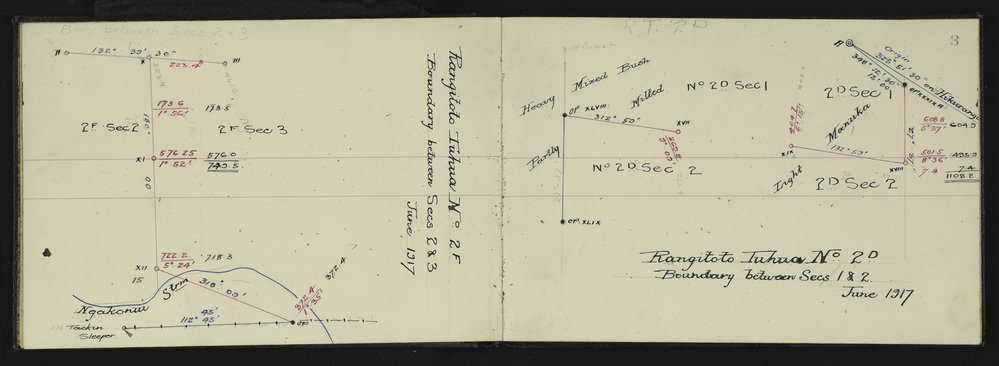 Bndy between Secs 2 & 3
II
132° 39' 30"
III
X
223.4
173.6
1° 56'
173.5
2F Sec 2
2F Sec 3
180°
00
XI
576.25
1° 52'
576.0
749.5
XII
722.2
5° 24'
718.3
15
318° 09'
Strm
Ngakonui
Tack in
Sleeper
45'
112° 45'
OP
372.4
1° 35'
372.4
Rangitoto Tuhua No 2F
Boundary between Secs 2 & 3
June 1917
R.T. 2D
3
Heavy Mixed Bush
Partly Milled
No 2D Sec 1
OP XLVIII
312° 50'
XVII
No 2D Sec 2
OP XLIX
Origin
325° 51' 30" on Hikurangi
348° 12' 30"
12' 00"
2D Sec 1
Manuka
608.8
5° 27'
604.9
XIX
132° 59'
XVIII
501.5
8° 36'
495.9
7.4
7.4
1108.2
Light
2D Sec 2
Rangitoto Tuhua No 2D
Boundary between Secs 1 & 2
June 1917